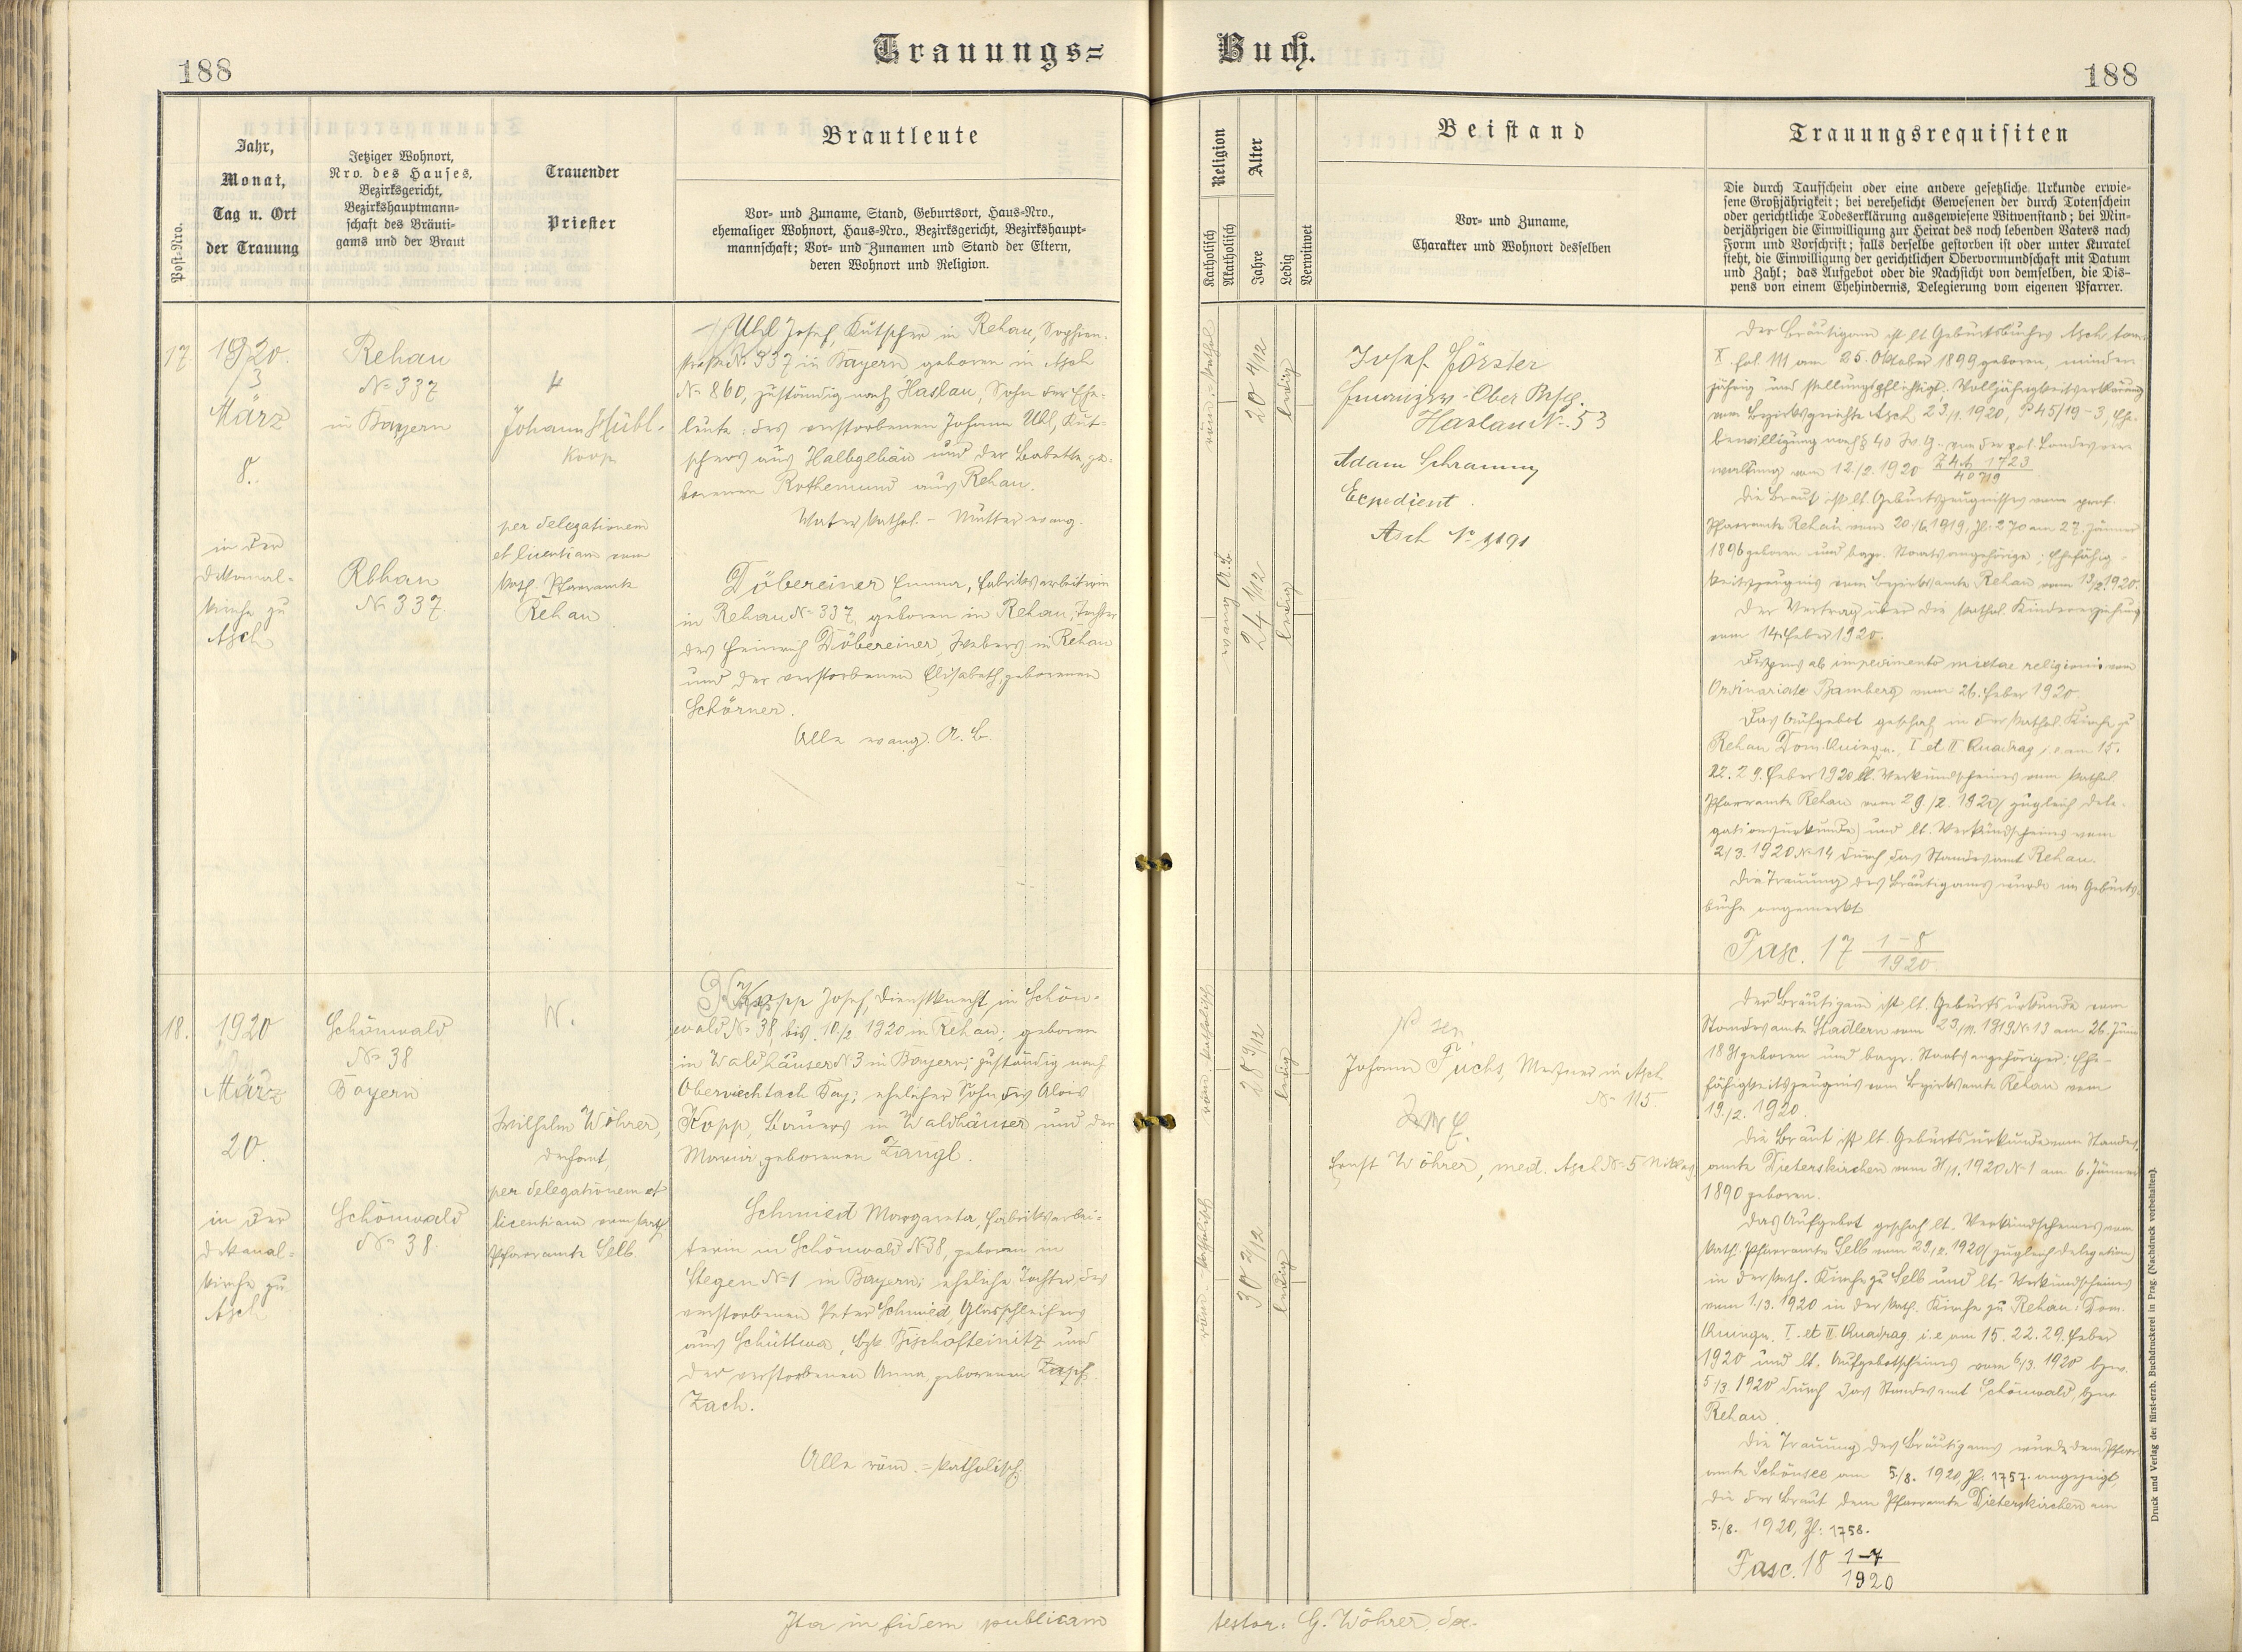 Trauungs=
Buch.
188
188
Post-Nro.
Jahr,
Monat,
Tag u. Ort
der Trauung
Jetziger Wohnort,
Nro. des Hauses,
Bezirksgericht,
Bezirkshauptmann-
schaft des Bräuti-
gams und der Braut
Trauender
Priester
Brautleute
Vor- und Zuname, Stand, Geburtsort, Haus-Nro.,
ehemaliger Wohnort, Haus-Nro., Bezirksgericht, Bezirkshaupt-
mannschaft; Vor- und Zunamen und Stand der Eltern,
deren Wohnort und Religion.
Religion
Katholisch
Akatholisch
Alter
Jahre
Ledig
Verwitwet
Beistand
Vor- und Zuname,
Charakter und Wohnort desselben
Trauungsrequisiten
Die durch Taufschein oder eine andere gesetzliche Urkunde erwie-
sene Großjährigkeit; bei verehelicht Gewesenen der durch Totenschein
oder gerichtliche Todeserklärung ausgewiesene Witwenstand; bei Min-
derjährigen die Einwilligung zur Heirat des noch lebenden Vaters nach
Form und Vorschrift; falls derselbe gestorben ist oder unter Kuratel
steht, die Einwilligung der gerichtlichen Obervormundschaft mit Datum
und Zahl; das Aufgebot oder die Nachsicht von demselben, die Dis-
pens von einem Ehehindernis, Delegierung vom eigenen Pfarrer.
17.
1920.
3
März
8.
in der
Dekanal-
kirche zu
Asch
Rehau
No 337
in Bayern
Rehau
No 337
Johann Hübl.
Koop
per delegationem
et licentiam vom
kath. Pfarramte
Rehau
Uhl Josef, Kutscher in Rehau, Sophien-
straße No 337 in Bayern geboren in Asch
No 860, zuständig nach Haslau, Sohn der Ehe-
leute: des verstorbenen Johann Uhl, Kut-
schers aus Halbgebäu und der Babette, ge-
borenen Rothemund aus Rehau.
Vater kathol. - Mutter evang.
Döbereiner Emma, Fabriksarbeiterin
in Rehau No 337, geboren in Rehau, Tochter
des Heinrich Döbereiner, Webers in Rehau
und der verstorbenen Elisabeth, geborenen
Schörner.
Alle evang. A. B.
röm.-kathol
20 4/12
ledig
evang A. B.
24 1/12
ledig
Josef Förster
Finanzw-Ober Resp.
Haslau No. 53
Adam Schramm
Expedient
Asch No 1191
Der Bräutigam ist lt. Geburtsbuches Asch tom.
X. fol. 111 am 25. Oktober 1899 geboren, minder-
jährig und stellungspflichtig; Volljährigkeitserklärung
vom Bezirksgerichte Asch 23/1. 1920, P 45/19-3, Ehe-
bewilligung nach § 40 W. G. von der pol. Landesver-
waltung vom 12./2. 1920
Die Braut ist lt. Geburtszeugnisses vom prot.
Pfarramte Rehau vom 1919, Zl. 270 am 27. Jänner
1896 geboren und bayr. Staatsangehörige; Ehefähig-
keitszeugnis vom Bezirksamte Rehau vom 13/2. 1920.
Der Vertrag über die kathol. Kindererziehung
vom 14. Feber 1920.
Dispens ab impedimento mixtae religionis vom
Ordinariate Bamberg vom 26. Feber 1920.
Das Aufgebot geschah in der kathol. Kirche zu
Rehau Dom. Quinqu., I et II Quadrag. i. e. am 15.
22. 29. Feber 1920 lt. Verkündscheines vom kathol.
Pfarramte Rehau vom 29./2. 1920 (zugleich Dele-
gationsurkunde) und lt. Verkündscheines vom
2/3. 1920 No 14 durch das Standesamt Rehau.
Die Trauung des Bräutigams wurde im Geburts-
buche angemerkt
Fasc. 17 1-8
1920.
18.
1920
März
20.
in der
Dekanal-
kirche zu
Asch
Schönwald
No 38
Bayern
Schönwald
No 38.
W.
Wilhelm Wöhrer,
Dechant,
per delegationem et
licentiam vom kath
Pfarramte Selb
Kopp Josef, Dienstknecht in Schön-
wald No 38, bis 10./2 1920 in Rehau; geboren
in Waldhäuser No 3 in Bayern; zuständig nach
Oberviechtach Bay; ehelicher Sohn des Alois
Kopp, Bauers in Waldhäuser und der
Maria, geborenen Zangl.
Schmied Margareta, Fabriksarbei-
terin in Schönwald No 38, geboren in
Stegen No 1 in Bayern; eheliche Tochter des
verstorbenen Peter Schmied, Glasschleifers
aus Schüttwa, Bzk. Bischofteinitz und
der verstorbenen Anna, geborenen Zapf
Zach.
Alle röm.=katholisch.
röm. katholisch
28 9/12
ledig
röm.-katholisch
30 2/12
ledig
Johann Fuchs, Mesner in Asch
No 115
Ernst Wöhrer, med. Asch No 5
Der Bräutigam ist lt. Geburtsurkunde vom
Standesamte Stadlern vom 1919 No 13 am 26. Juni
1891 geboren und bayr. Staatsangehöriger; Ehe-
fähigkeitszeugnis vom Bezirksamte Rehau vom
19./2. 1920.
Die Braut ist lt. Geburtsurkunde vom Standes-
amte Dieterskirchen vom 1920 No 1 am 6. Jänner
1890 geboren.
Das Aufgebot geschah lt. Verkündscheines vom
kath. Pfarramte Selb vom 29./2. 1920 (zugleich Delegation)
in der kath. Kirche zu Selb und lt. Verkündscheines
vom 1./3. 1920 in der kath. Kirche zu Rehau: Dom.
Quinqu. I. et II. Quadrag. i. e. am 15. 22. 29. Feber
1920 und lt. Aufgebotscheines vom 6/3. 1920 bzw.
5/3. 1920 durch das Standesamt Schönwald, bzw
Rehau.
Die Trauung des Bräutigams wurde dem Pfarr-
amte Schönsee am 5./8. 1920, Zl. 1757. angezeigt,
die der Braut dem Pfarramte Dieterskirchen am
5./8. 1920, Zl: 1758.
Fasc. 18 1-7
1920
Ita in fidem publicam
testor: G. Wöhrer, de.
Druck und Verlag der fürst-erzb. Buchdruckerei in Prag. (Nachdruck vorbehalten).